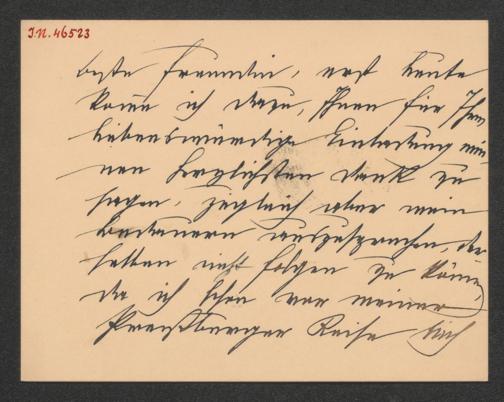 J.N. 46523
beste Freundin, erst heute
komme ich dazu, Ihnen für Ihre
liebenswürdige Einladung mei-
nen herzlichsten Dank zu
sagen, zugleich aber mein
Bedauern auszusprechen, der-
selben nicht folgen zu können,
da ich schon vor meiner
Preßburger Reise